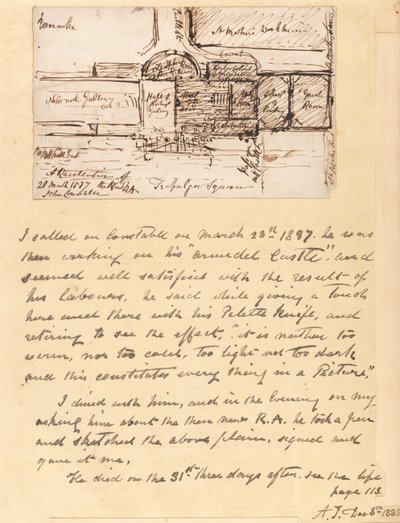 Barracks
St Martins Workhouse
National Gallery
Hall of
Court
Pall Mall East
A Recollection of
28 March 1837 the Royal
John Constable RA.
Trafalgar Square
I called on Constable on March 28th 1837. he was
then working on his "Arundel Castle", and
seemed well satisfied with the result of
his labours, he said while giving a touch
here and there with his Palette Knife, and
retiring to see the effect, "it is neither too
warm, nor too cold, too light nor too dark
and this constitutes every thing in a Picture."
I dined with him, and in the Evening on my
asking him about the then new R.A. he took a pen
and sketched the above plan, signed and
gave it me.
He died on the 31st three days after. see the life
page 113.
Dec 8th 188